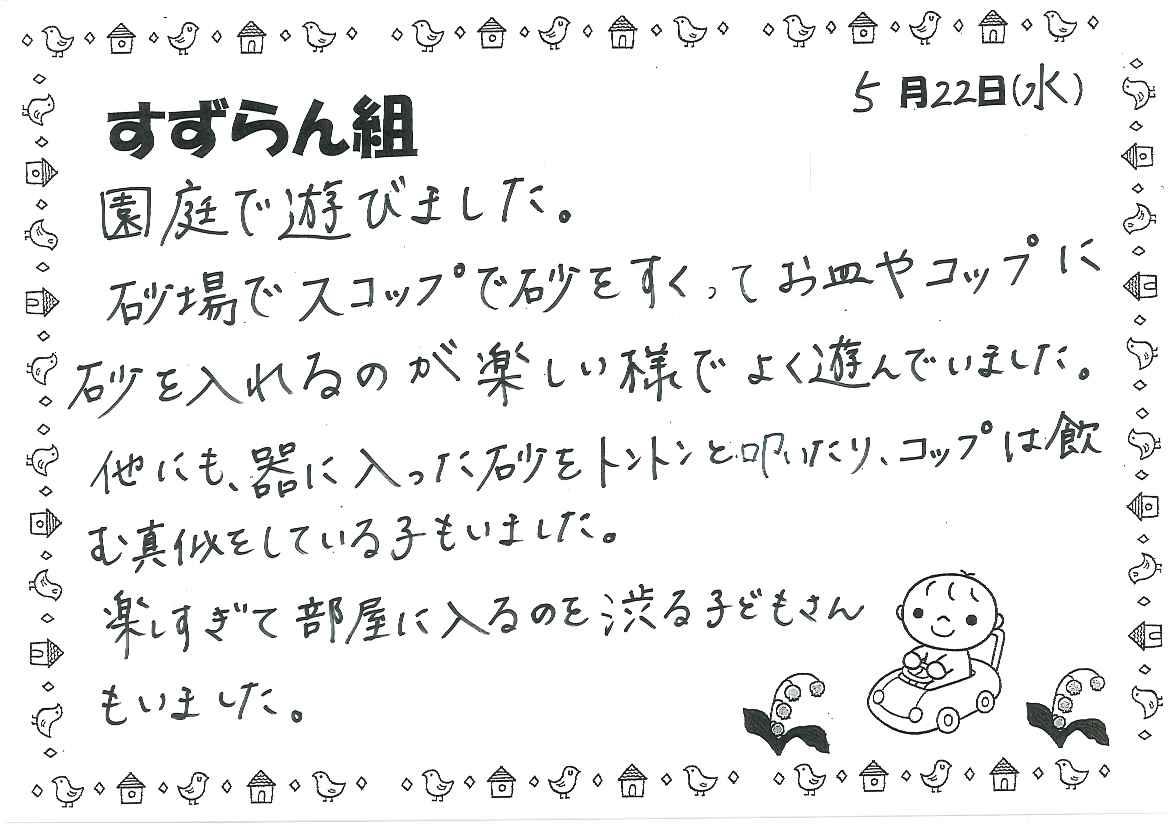 5月22日(水)
すずらん組
園庭で遊びました。
砂場でスコップで砂をすくってお皿やコップに
砂を入れるのが楽しい様でよく遊んでいました。
他にも、器に入った砂をトントンと叩いたり、コップは飲
む真似をしている子もいました。
楽しすぎて部屋に入るのを渋る子どもさん
もいました。